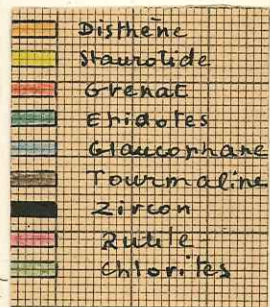 Disthène
Staurotide
Grenat
Epidotes
Glaucophane
Tourmaline
Zircon
Rutile
Chlorites